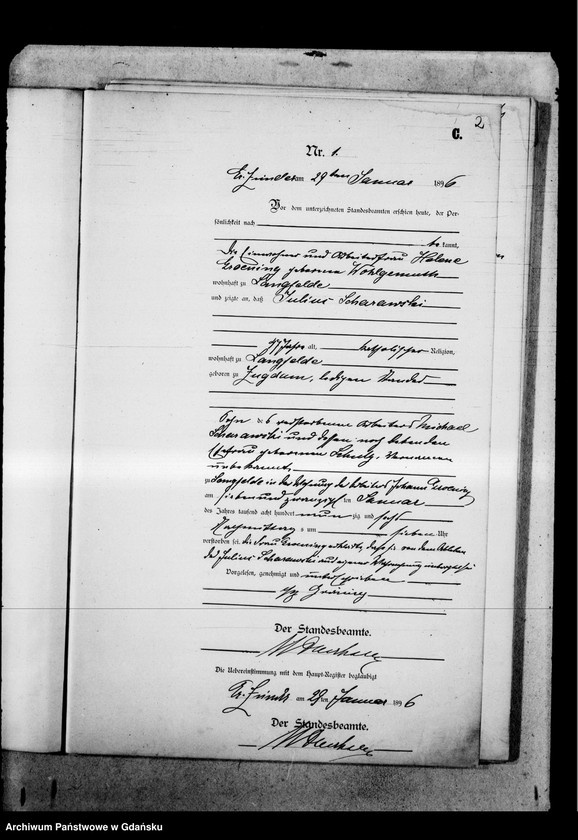 C. 2
Nr. 1.
Gr. Zünder am 29ten Januar 1896
Vor dem unterzeichneten Standesbeamten erschien heute, der Per-
sönlichkeit nach
be kannt,
die Einwohner und Arbeiterfrau Helene
Groening geborene Wohlgemuth
wohnhaft zu Langfelde
und zeigte an, daß Julius Scharawski
47 Jahre alt, katholischer Religion,
wohnhaft zu Langfelde
geboren zu Zugdam, ledigen Standes
Sohn des verstorbenen Arbeiters Michael
Scharawski und dessen noch lebenden
Ehefrau geborenen Schulz, Vornamen
unbekannt,
zu Langfelde in der Wohnung des Arbeiters Johann Groening
am siebenundzwanzigsten Januar
des Jahres tausend acht hundert neun zig und sechs
Nachmittags um sieben Uhr
verstorben sei. Die Frau Groening erklärte, dass sie von dem Ableben
des Julius Scharawski aus eigener Wissenschaft unterrichtet sei
Vorgelesen, genehmigt und unterschrieben
Gröning
Der Standesbeamte.
Die Uebereinstimmung mit dem Haupt-Register beglaubigt
Gr. Zünder am 29ten Januar 1896
Der Standesbeamte.
Archiwum Państwowe w Gdańsku